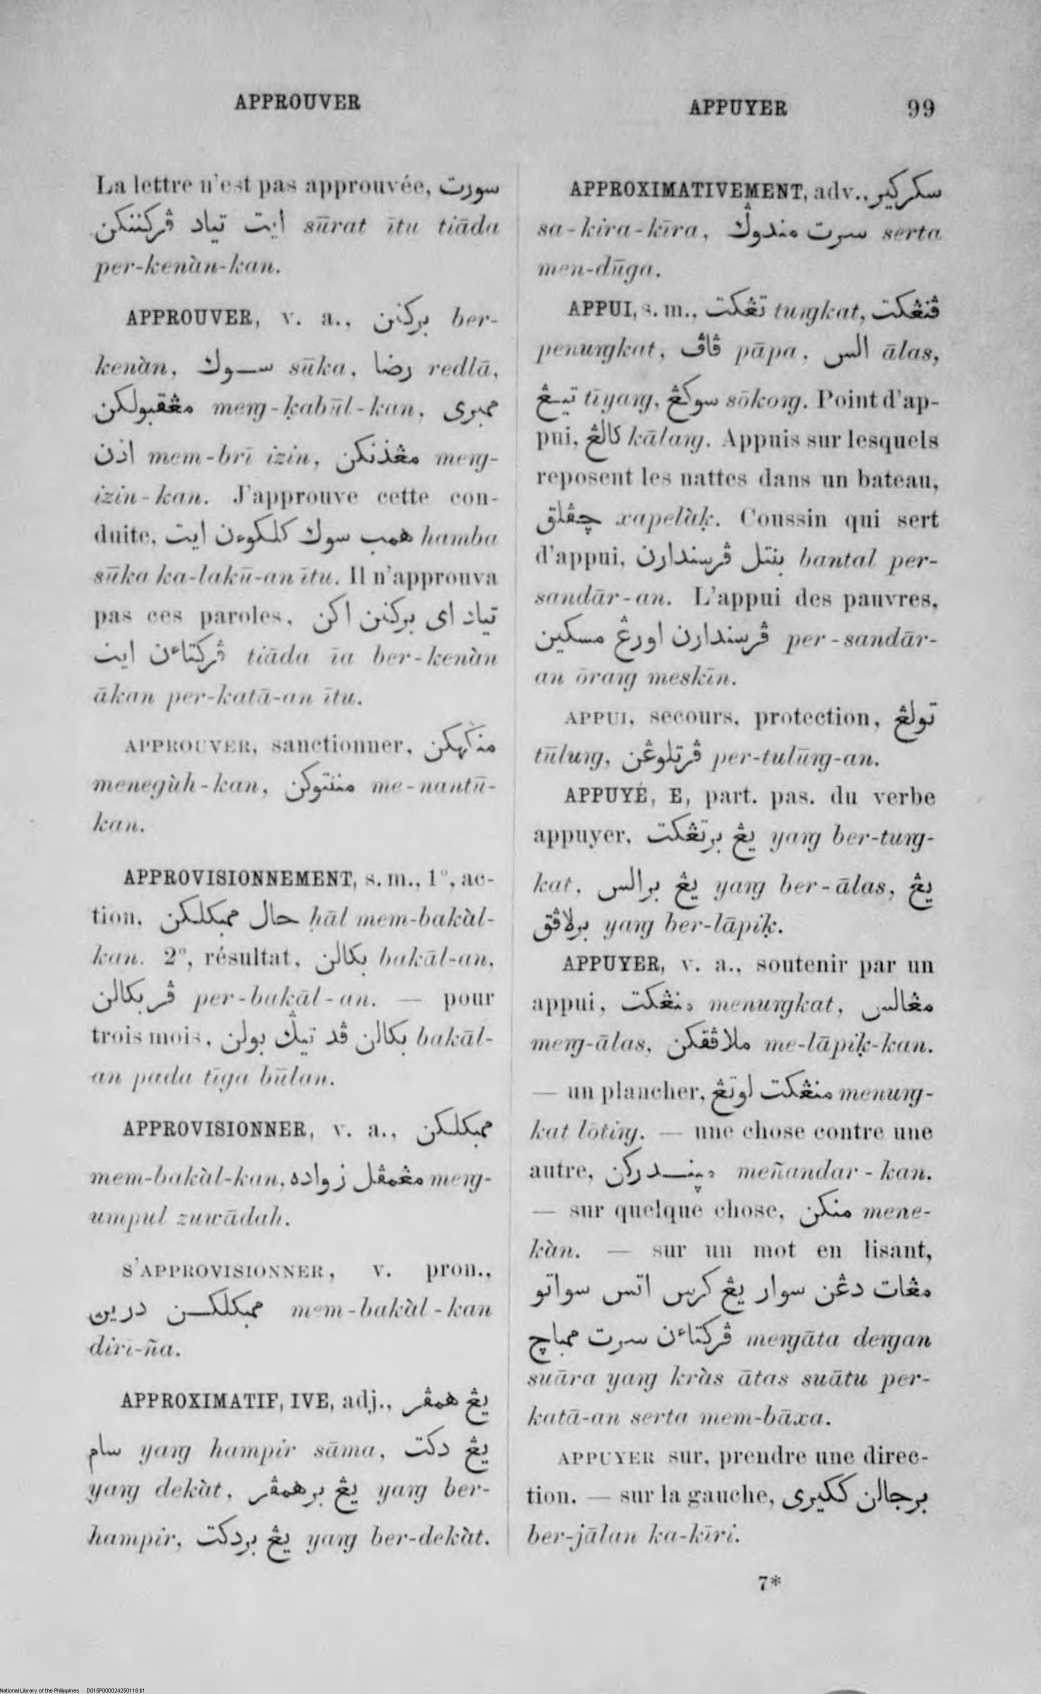 APPROUVER
La lettre n'est pas approuvée, سورت
ايت تياد ڤركننكن sūrat ītu tiāda
per-kenàn-kan.
APPROUVER, v. a., بركنن ber-
kenàn, سوك sūka, رضا redlā,
مڠقبولكن meṅg-ḳabūl-kan, ممبرى
اذن mem-brī izin, مڠذنكن meṅg-
izin-kan. J'approuve cette con-
duite, همب سوك كلكوءن ايت hamba
sūka ka-lakū-an ītu. Il n'approuva
pas ces paroles, تياد اى بركنن اكن
ڤركتاءن ايت tiāda īa ber-kenàn
ākan per-katā-an ītu.
APPROUVER, sanctionner, منݢهكن
menegùh-kan, مننتوكن me-nantū-
kan.
APPROVISIONNEMENT, s. m., 1°, ac-
tion, حال ممبكلكن ḥāl mem-bakàl-
kan. 2°, résultat, بكالن bakāl-an,
ڤربكالن per-bakāl-an. — pour
trois mois, بكالن ڤد تيݢ بولن bakāl-
an pada tīga būlan.
APPROVISIONNER, v. a., ممبكلكن
mem-bakàl-kan, مڠمڤل زواده meṅg-
umpul zuwādah.
S'APPROVISIONNER, v. pron.,
ممبكلكن درين mem-bakàl-kan
dīrī-ña.
APPROXIMATIF, IVE, adj., يڠ همڤر
سام yaṅg hampir sāma, يڠ دكت
yaṅg dekàt, يڠ برهمڤر yaṅg ber-
hampir, يڠ بردكت yaṅg ber-dekàt.
APPUYER 99
APPROXIMATIVEMENT, adv., سكركير
sa-kira-kīra, سرت مندوݢ serta
men-dūga.
APPUI, s. m., تڠكت tuṅgkat, ڤنڠكت
penuṅgkat, ڤاڤ pāpa, الس ālas,
تيڠ tīyaṅg, سوكڠ sōkoṅg. Point d'ap-
pui, كالڠ kālaṅg. Appuis sur lesquels
reposent les nattes dans un bateau,
چڤلق xapelàḳ. Coussin qui sert
d'appui, بنتل ڤرسندارن bantal per-
sandār-an. L'appui des pauvres,
ڤرسندارن اورڠ مسكين per-sandār-
an ōraṅg meskīn.
APPUI, secours, protection, تولڠ
tūluṅg, ڤرتلوڠن per-tulūṅg-an.
APPUYÉ, E, part. pas. du verbe
appuyer, يڠ برتڠكت yaṅg ber-tuṅg-
kat, يڠ برالس yaṅg ber-ālas, يڠ
برلاڤق yaṅg ber-lāpiḳ.
APPUYER, v. a., soutenir par un
appui, منڠكت menuṅgkat, مڠالس
meṅg-ālas, ملاڤقكن me-lāpiḳ-kan.
— un plancher, منڠكت لوتڠ menuṅg-
kat lōtiṅg. — une chose contre une
autre, مڽندركن meñandar-kan.
— sur quelque chose, منكن mene-
kàn. — sur un mot en lisant,
مڠات دڠن سوار يڠ كرس اتس سواتو
ڤركتاءن سرت ممباچ meṅgāta deṅgan
suāra yaṅg kràs ātas suātu per-
katā-an serta mem-bāxa.
APPUYER sur, prendre une direc-
tion. — sur la gauche, برجالن ككيرى
ber-jālan ka-kīri.
7*
National Library of the Philippines